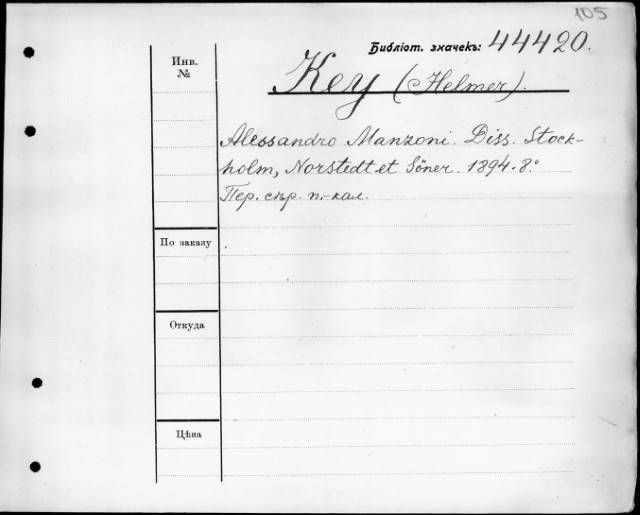 105
Библіот. значекъ: 44420.
Инв.
№
Key (Helmer).
Alessandro Manzoni. Diss. Stock-
holm, Norstedt et Söner. 1894. 8.°
Пер. сѣр. п.-кал.
По заказу
Откуда
Цѣна